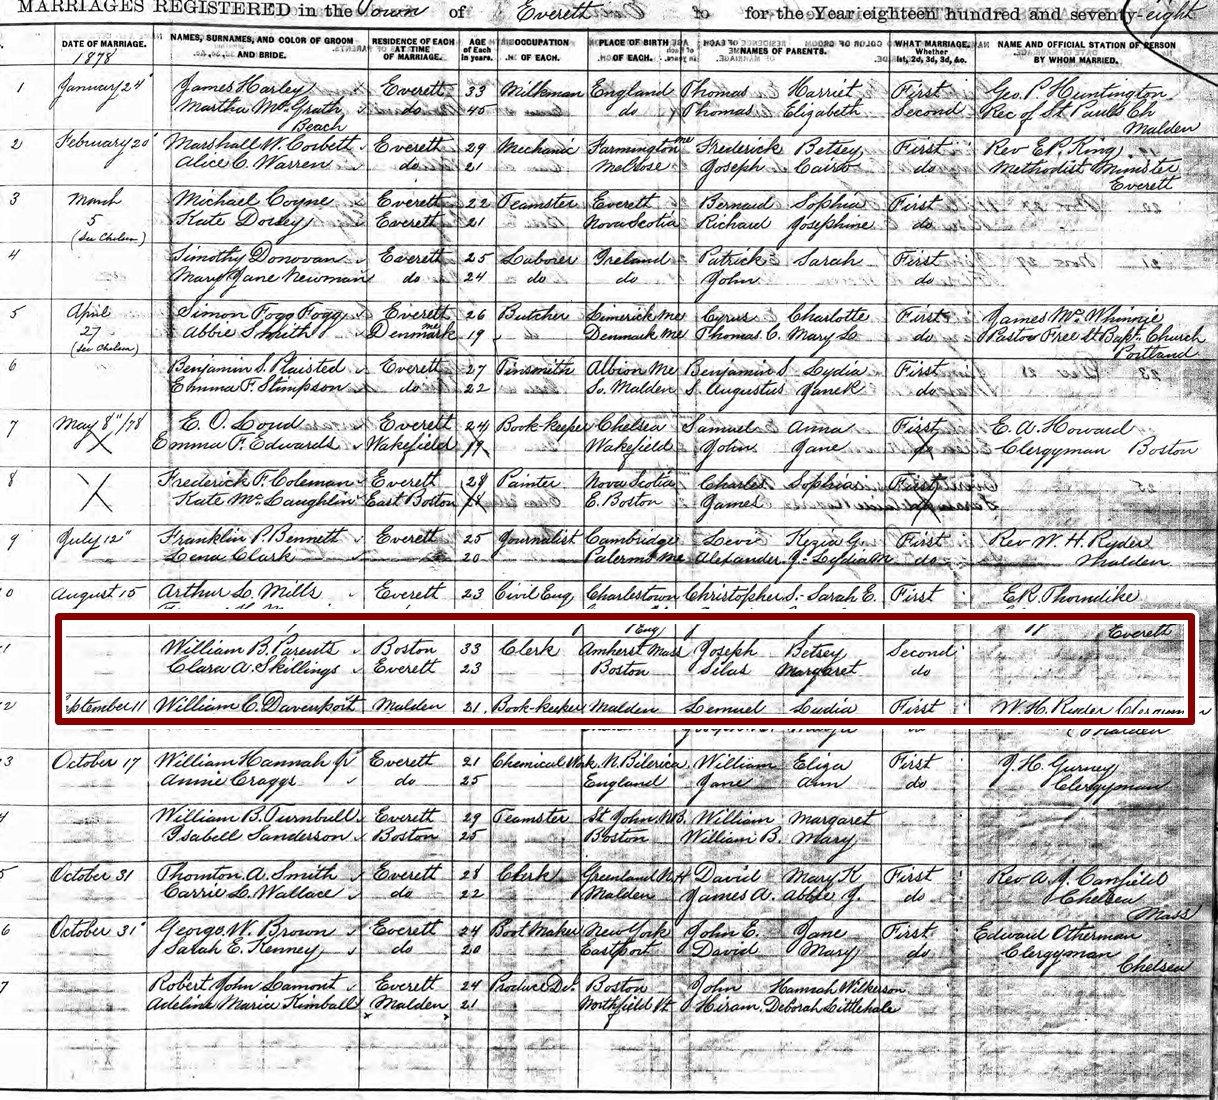 MARRIAGES REGISTERED in the Town of Everett for the Year eighteen hundred and seventy-eight
DATE OF MARRIAGE. NAMES, SURNAMES, AND COLOR OF GROOM AND BRIDE. RESIDENCE OF EACH AT TIME OF MARRIAGE. AGE of Each in years. OCCUPATION OF EACH. PLACE OF BIRTH OF EACH. NAMES OF PARENTS. WHAT MARRIAGE, Whether 1st, 2d, 3d, &c. NAME AND OFFICIAL STATION OF PERSON BY WHOM MARRIED.
1878
1 January 24 James Harley Everett 33 Milkman England Thomas Harriet First Geo. P. Huntington
Martha Mc. Grath do 45 do Thomas Elizabeth Second Rec of St Pauls Ch
Beach Malden
2 February 20 Marshall W. Corbett Everett 29 Mechanic Farmington Me Frederick Betsey First Rev E. R. King
Alice C. Warren do 21 Melrose Joseph do Methodist Minister
Everett
3 March Michael Coyne Everett 22 Teamster Everett Bernard Sophia First
5 Kate Dorsey Everett 21 Nova Scotia Richard Josephine do
(See Chelsea)
4 Timothy Donovan Everett 25 Laborer Ireland Patrick Sarah First
Mary Jane Newman do 24 do do John do
5 April Simon Fogg Fogg Everett 26 Butcher Limerick Me Cyrus Charlotte First James Mc. Whinnie
27 Abbie Smith Denmark me 19 Denmark Me Thomas C. Mary L. do Pastor Free St Bapt. Church
(See Chelsea) Portland
6 Benjamin S. Plaisted Everett 27 Tinsmith Albion Me Benjamin S. Lydia First
Emma F. Stimpson do 22 So. Malden S. Augustus Jane K do
7 May 8"/78 E. O. Loud Everett 24 Book-keeper Chelsea Samuel Anna First E. A. Howard
X Emma F. Edwards Wakefield 19 Wakefield John Jane do Clergyman Boston
8 X Frederick F. Coleman Everett 28 Painter Nova Scotia Charles Sophia First
Kate Mc. Laughlin East Boston E. Boston James
9 July 12" Franklin P. Bennett Everett 25 Journalist Cambridge Levi Kezia G. First Rev W. H. Ryder
Lena Clark 20 Palermo Me Alexander J. Lydia M do Malden
0 August 15 Arthur L. Mills Everett 23 Civil Eng Charlestown Christopher S. Sarah E. First E. R. Thorndike
Eng Everett
1 William B. Parents Boston 33 Clerk Amherst Mass Joseph Betsey Second
Clara A. Skillings Everett 23 Boston Silas Margaret do
2 September 11 William C. Davenport Malden 21 Book-keeper Malden Lemuel Lydia First W. H. Ryder Clergyman
Malden
3 October 17 William Hannah Jr Everett 21 Chemical Work N. Bilerica William Eliza First J. H. Gurney
Annie Craggs do 25 England Jane Ann do Clergyman
4 William B. Turnbull Everett 29 Teamster St John N.B. William Margaret
Isabell Sanderson Boston 25 Boston William B. Mary
5 October 31 Thornton A. Smith Everett 28 Clerk Greenland N.H David Mary K First Rev A. J. Canfield
Carrie L. Wallace do 22 Malden James A. Abbie J. do Chelsea
Mass
6 October 31" George W. Brown Everett 24 Boot Maker New York John E. Jane First Edward Otherman
Sarah E. Kenney do 20 Eastport David Mary do Clergyman
Chelsea
7 Robert John Lamont Everett 24 Produce Del. Boston John Hannah Wilkerson
Adeline Maria Kimball Malden 21 Northfield Vt Hiram. Deborah Littlehale